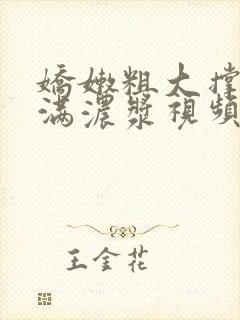 嬌嫩粗大撐
滿濃漿視頻
王金花